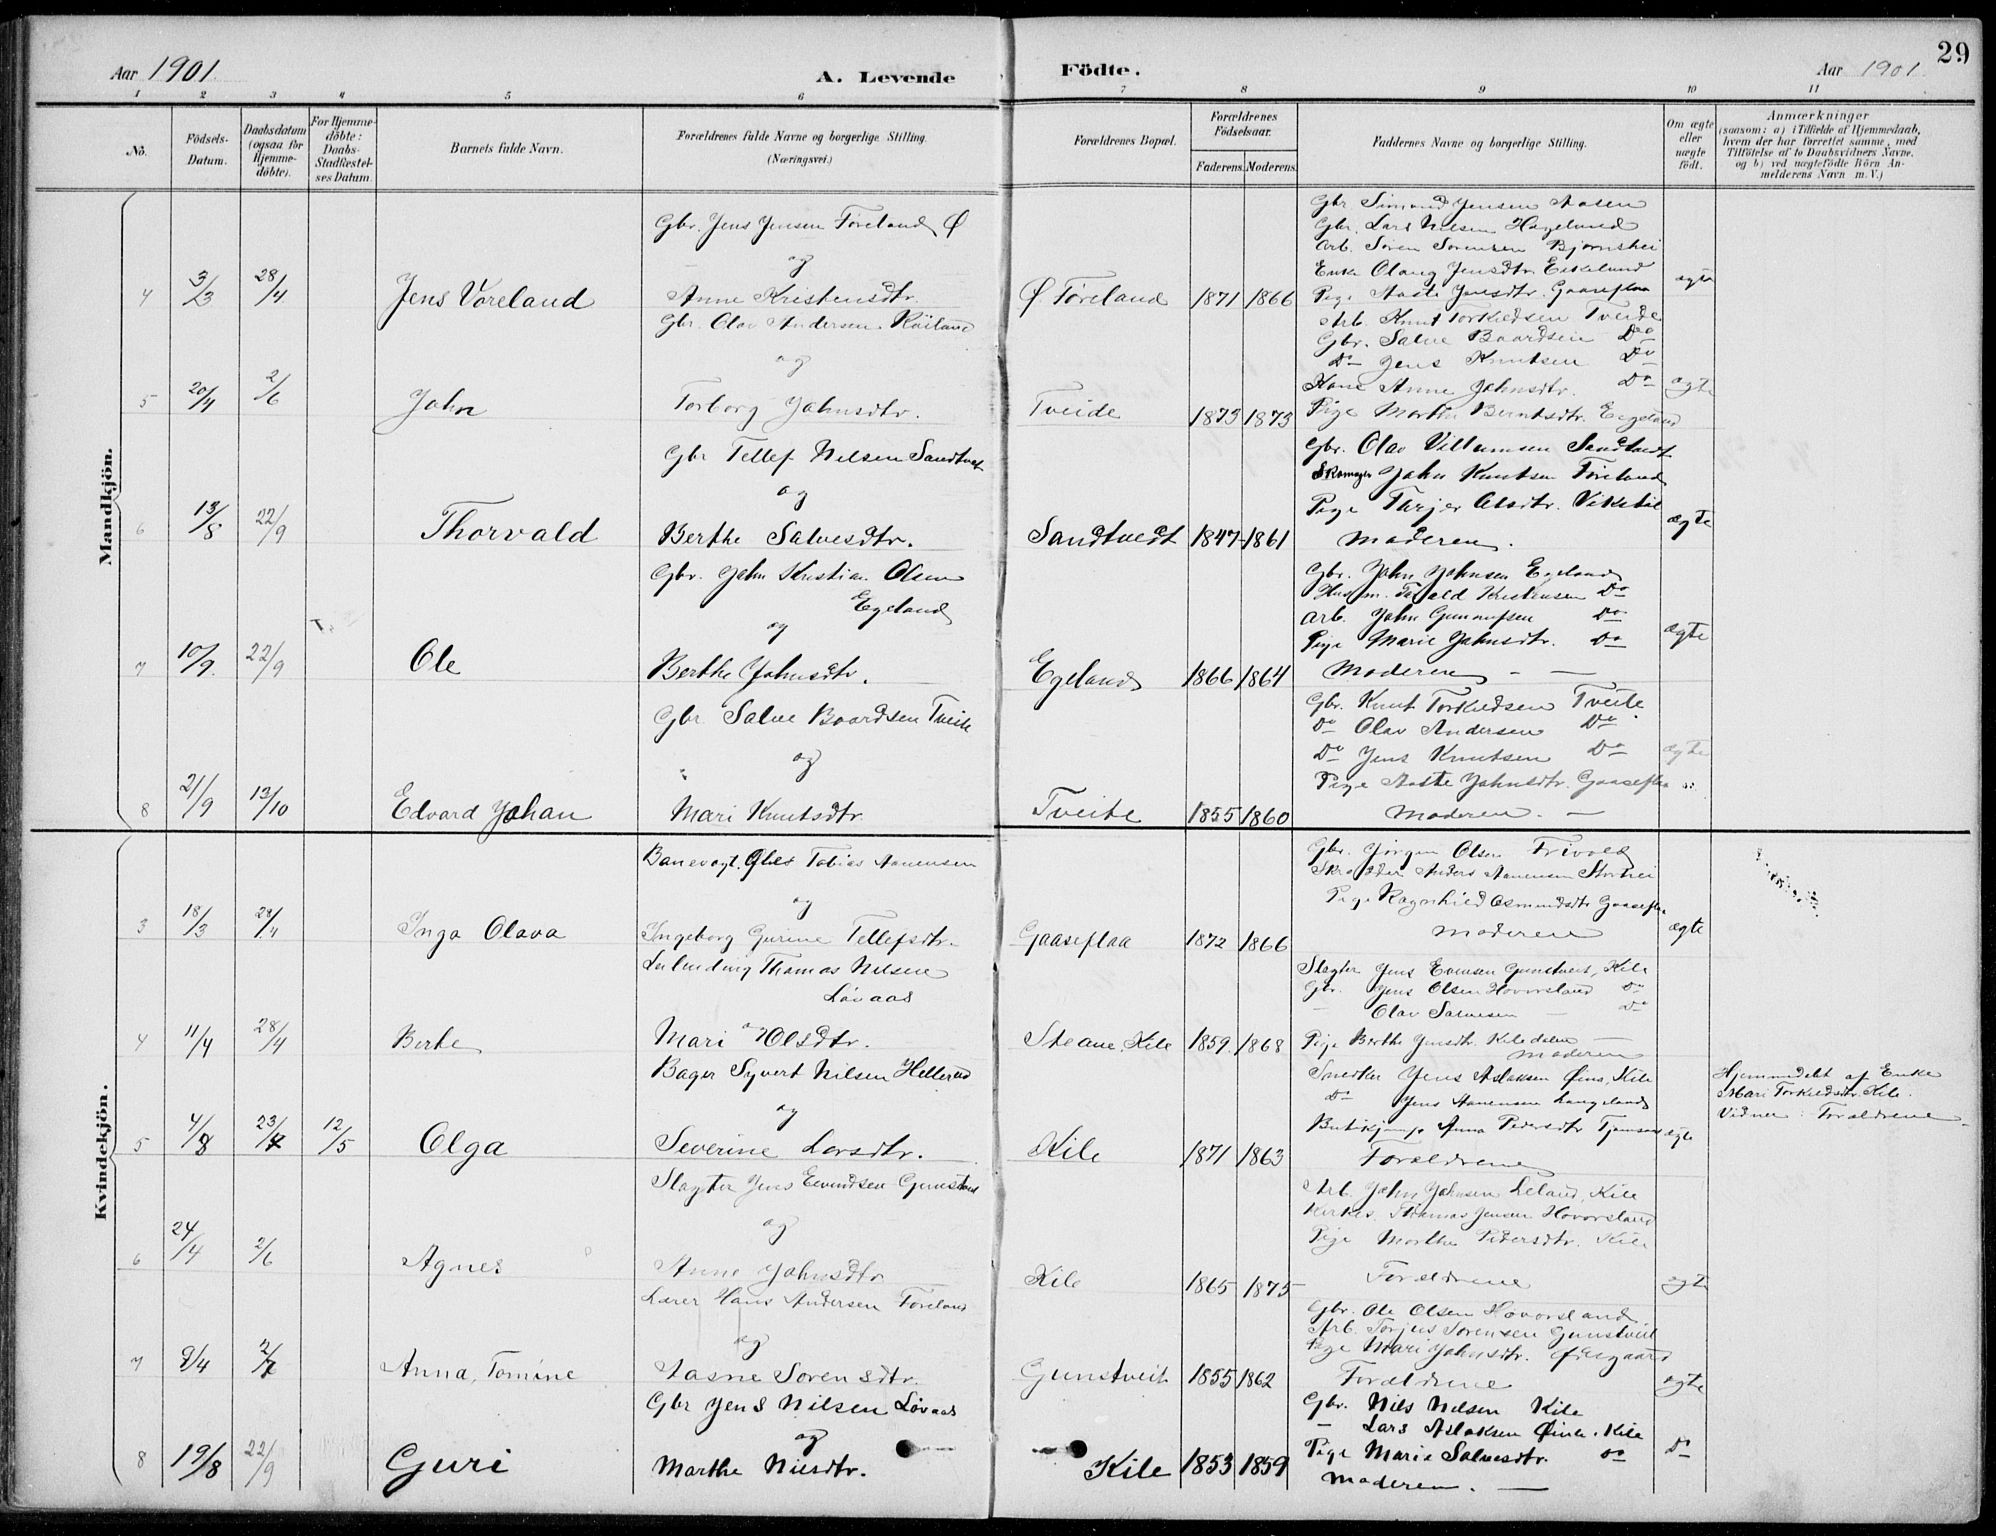 Aar 1901.
A. Levende
Födte.
Aar 1901.
29
1 2 3 4 5 6 7 8 9 10 11
No.
Födsels-Datum.
Daabsdatum (ogsaa for Hjemme-döbte).
For Hjemme-döbte: Daabs-Stadfæstel-ses Datum.
Barnets fulde Navn.
Forældrenes fulde Navne og borgerlige Stilling. (Næringsvei.)
Forældrenes Bopæl.
Forældrenes Födselsaar.
Faderens Moderens
Faddernes Navne og borgerlige Stilling.
Om ægte eller uægte födt.
Anmærkninger
(saasom: a) i Tilfælde af Hjemmedaab, hvem der har forrettet samme, med Tilföielse af to Daabsvidners Navne, og b) ved uægtefödte Börn An-melderens Navn m. V.)
Mandkjön.
4 3/3 28/4 Jens Voreland
Gbr. Jens Jensen Føreland, Ø
og
Anne Kristensdtr.
Ø. Føreland 1871 1866
Gbr Simund Jensen Aasen
Gbr. Lars Nilsen Hageland
Arb. Søren Sørensen Bjørnshei
Enke Olaug Jensdtr. Eikeland
Pige Aaste Jensdtr. Gaaseflaa
ægte
5 20/4 2/6 John
Gbr. Olav Andersen
og
Torborg Johnsdtr.
Tveide 1873 1873
Arb. Knut Torkildsen Tveide
Gbr. Salve Baardsen Do
Do Jens Knutsen Do
Kone Anne Johnsdtr. Do
Pige Marthe Berntsdtr. Egeland
ægte
6 13/8 22/9 Thorvald
Gbr Tellef Nilsen Sandtvet
og
Berthe Salvesdtr.
Sandtvedt 1847 1861
Gbr. Olav Villumsen Sandtvedt
Skomager John Knutsen Føreland
Pige Tarjer Olsdtr.
Moderen.
ægte
7 10/9. 22/9 Ole
Gbr. John Kristian Olsen
Egeland
og
Berthe Johnsdtr.
Egeland 1866 1864
Gbr. John Johnsen Egeland
Husm. Kristensen Do
Arb. John Gunnufsen Do
Pige Marie Johnsdtr. Do
Moderen
ægte
8 21/9 13/10 Edvard Johan
Gbr Salve Baardsen Tveite
og
Mari Knutsdtr.
Tveite 1855 1860
Gbr. Knut Torkildsen Tveite
Do Olav Andersen Do
Do Jens Knutsen Do
Pige Aaste Johnsdtr. Gaaseflaa
Moderen.
ægte
Kvindekjön.
3 18/3 28/4 Inga Olava
Banevogt. Tobias Aanensen
og
Ingeborg Gurine Tellefsdtr.
Gaaseflaa 1872 1866
Gbr. Jørgen Olsen Frivold
Skrædder Anders Aanensen
Pige Ragnhild Osmundsdtr Gaaseflaa
Moderen
ægte
4 11/4 28/4 Berte
Leilending Thomas Nilsen
Løvaas
og
Mari Olsdtr.
Steane, Kile 1859. 1868
Slagter Jens Evensen Gunstveit, Kile
Gbr. Jens Olsen Hovorsland Do
Olav Salvesen Do
Pige Berthe Jensdtr. Kiledalen
Moderen
5 4/8 23/7 12/5 Olga
Bager Syvert Nilsen Hellerud
og
Severine Larsdtr.
Kile 1871 1863
Snedker Jens Aslaksen Øine, Kile
Do Jens Aanensen Langeland
Anna Pedersdtr
Forældrene
ægte
Hjemmedøbt af Enke
Mari Torkildsdtr. Kile.
Vidner: Forældrene
6 24/4 2/6 Agnes
Slagter Jens Eivindsen Gunstveit
og
Anne Johnsdtr
Kile 1865 1875
Arb. John Johnsen Leland, Kile
Thomas Jensen Hovorsland
Pige Marthe Pedersdtr. Kile
Forældrene
ægte
7 9/4 2/7 Anna, Tomine
Lærer Hans Andersen Føreland
og
Aasne Sørensdtr.
Gunstveit 1855 1862
Gbr. Ole Olsen Hovorsland
Arb. Torjus Sørensen Gunstveit
Pige Mari Johnsdtr.
Forældrene
ægte
8 19/8 22/9 Guri
Gbr Jens Nilsen Løvaas
og
Marthe Nilsdtr.
Kile 1853 1859
Gbr. Nils Nilsen Kile
— Lars Aslaksen Øine. Kile
Pige Marie Salvesdtr. Do
Moderen.
Do